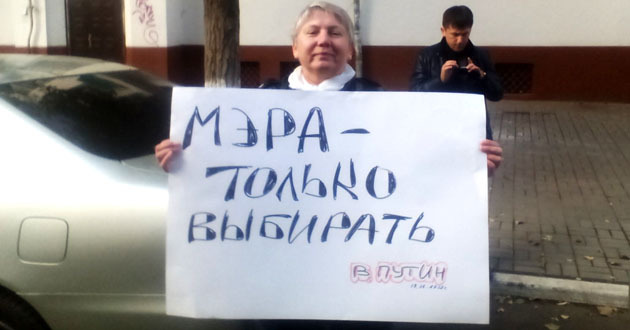 МЭРА -
ТОЛЬКО
ВЫБИРАТЬ
В. ПУТИН